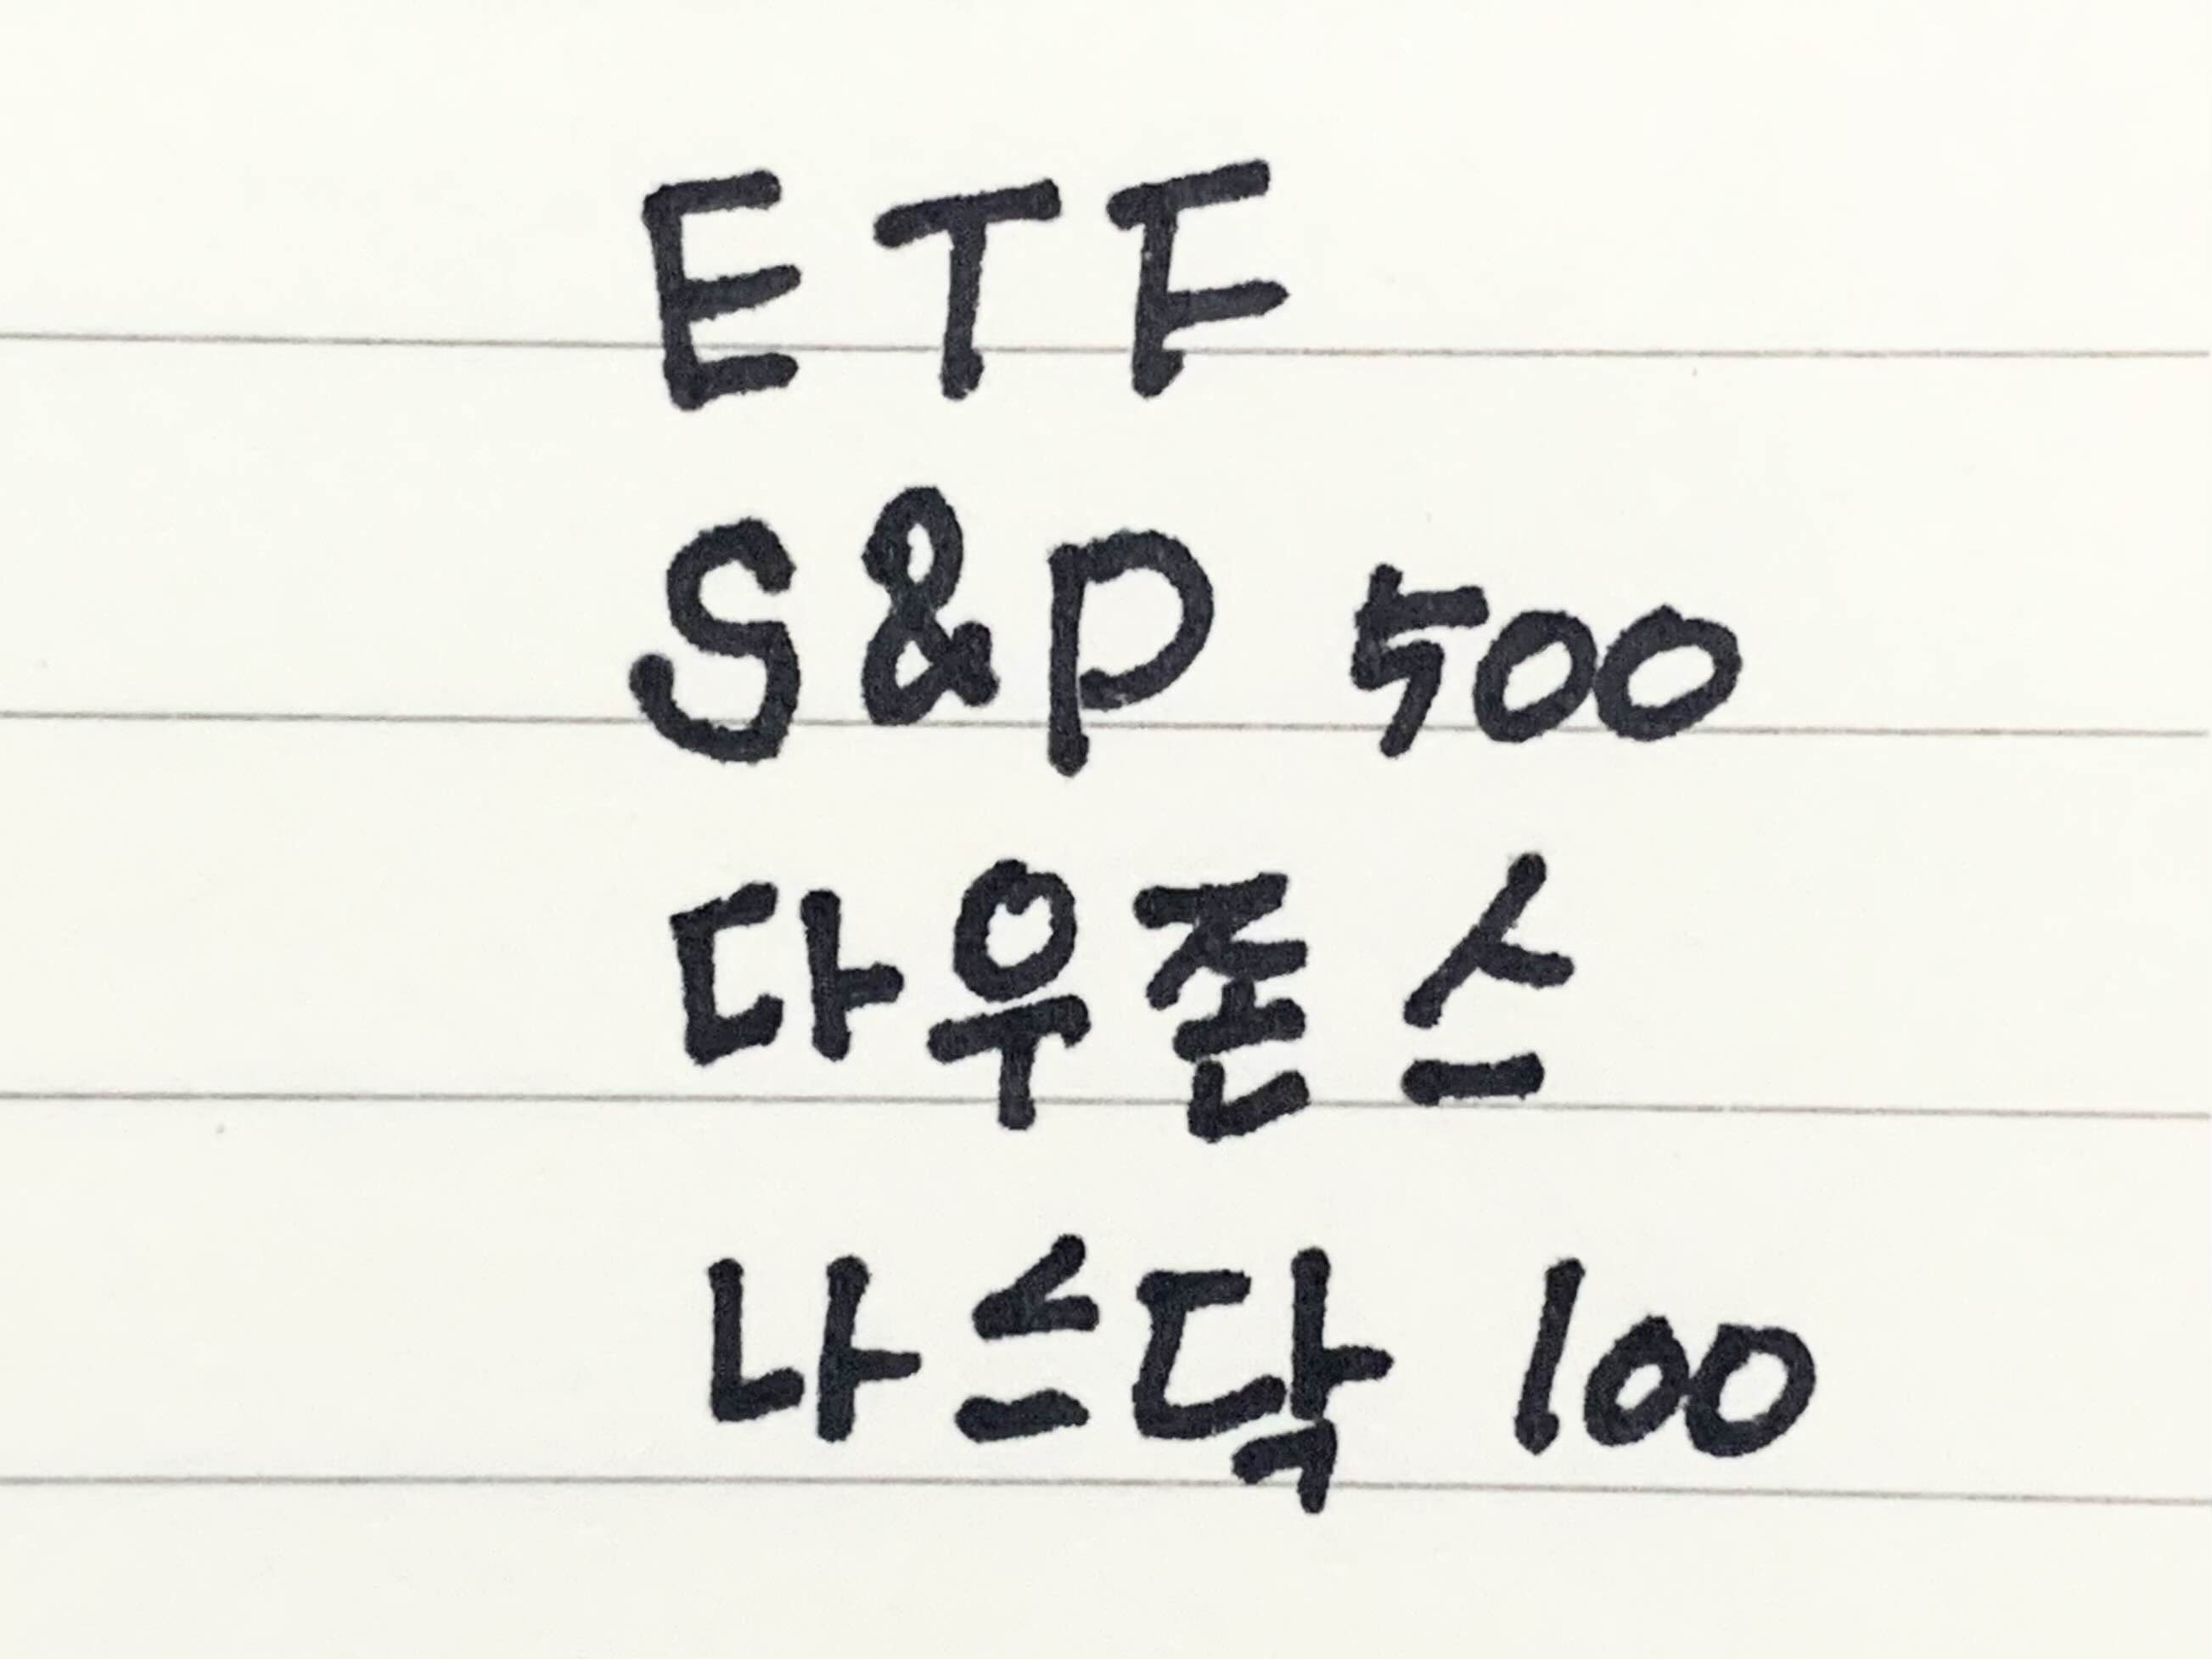 ETF
S&P 500
다우존스
나스닥 100